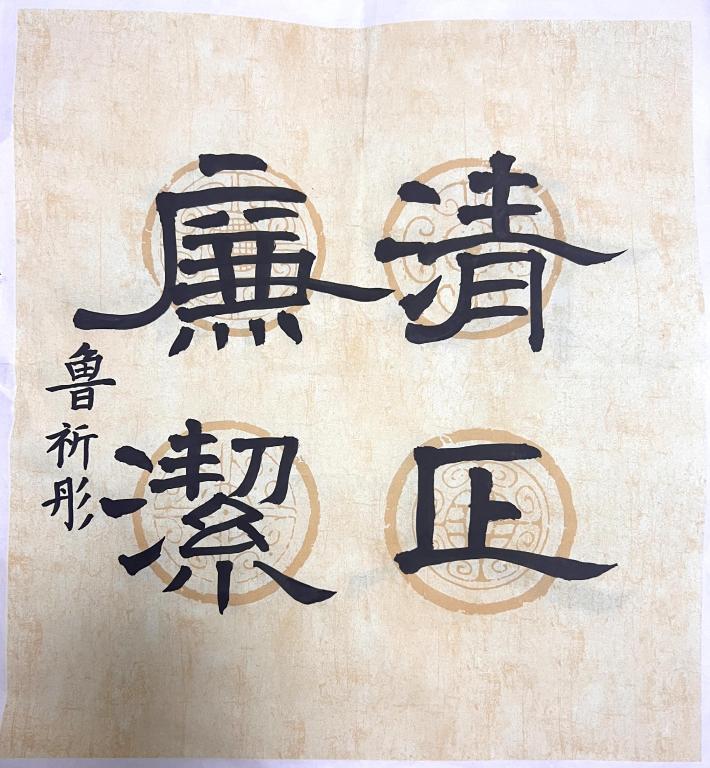 清正
廉潔
魯祈彤